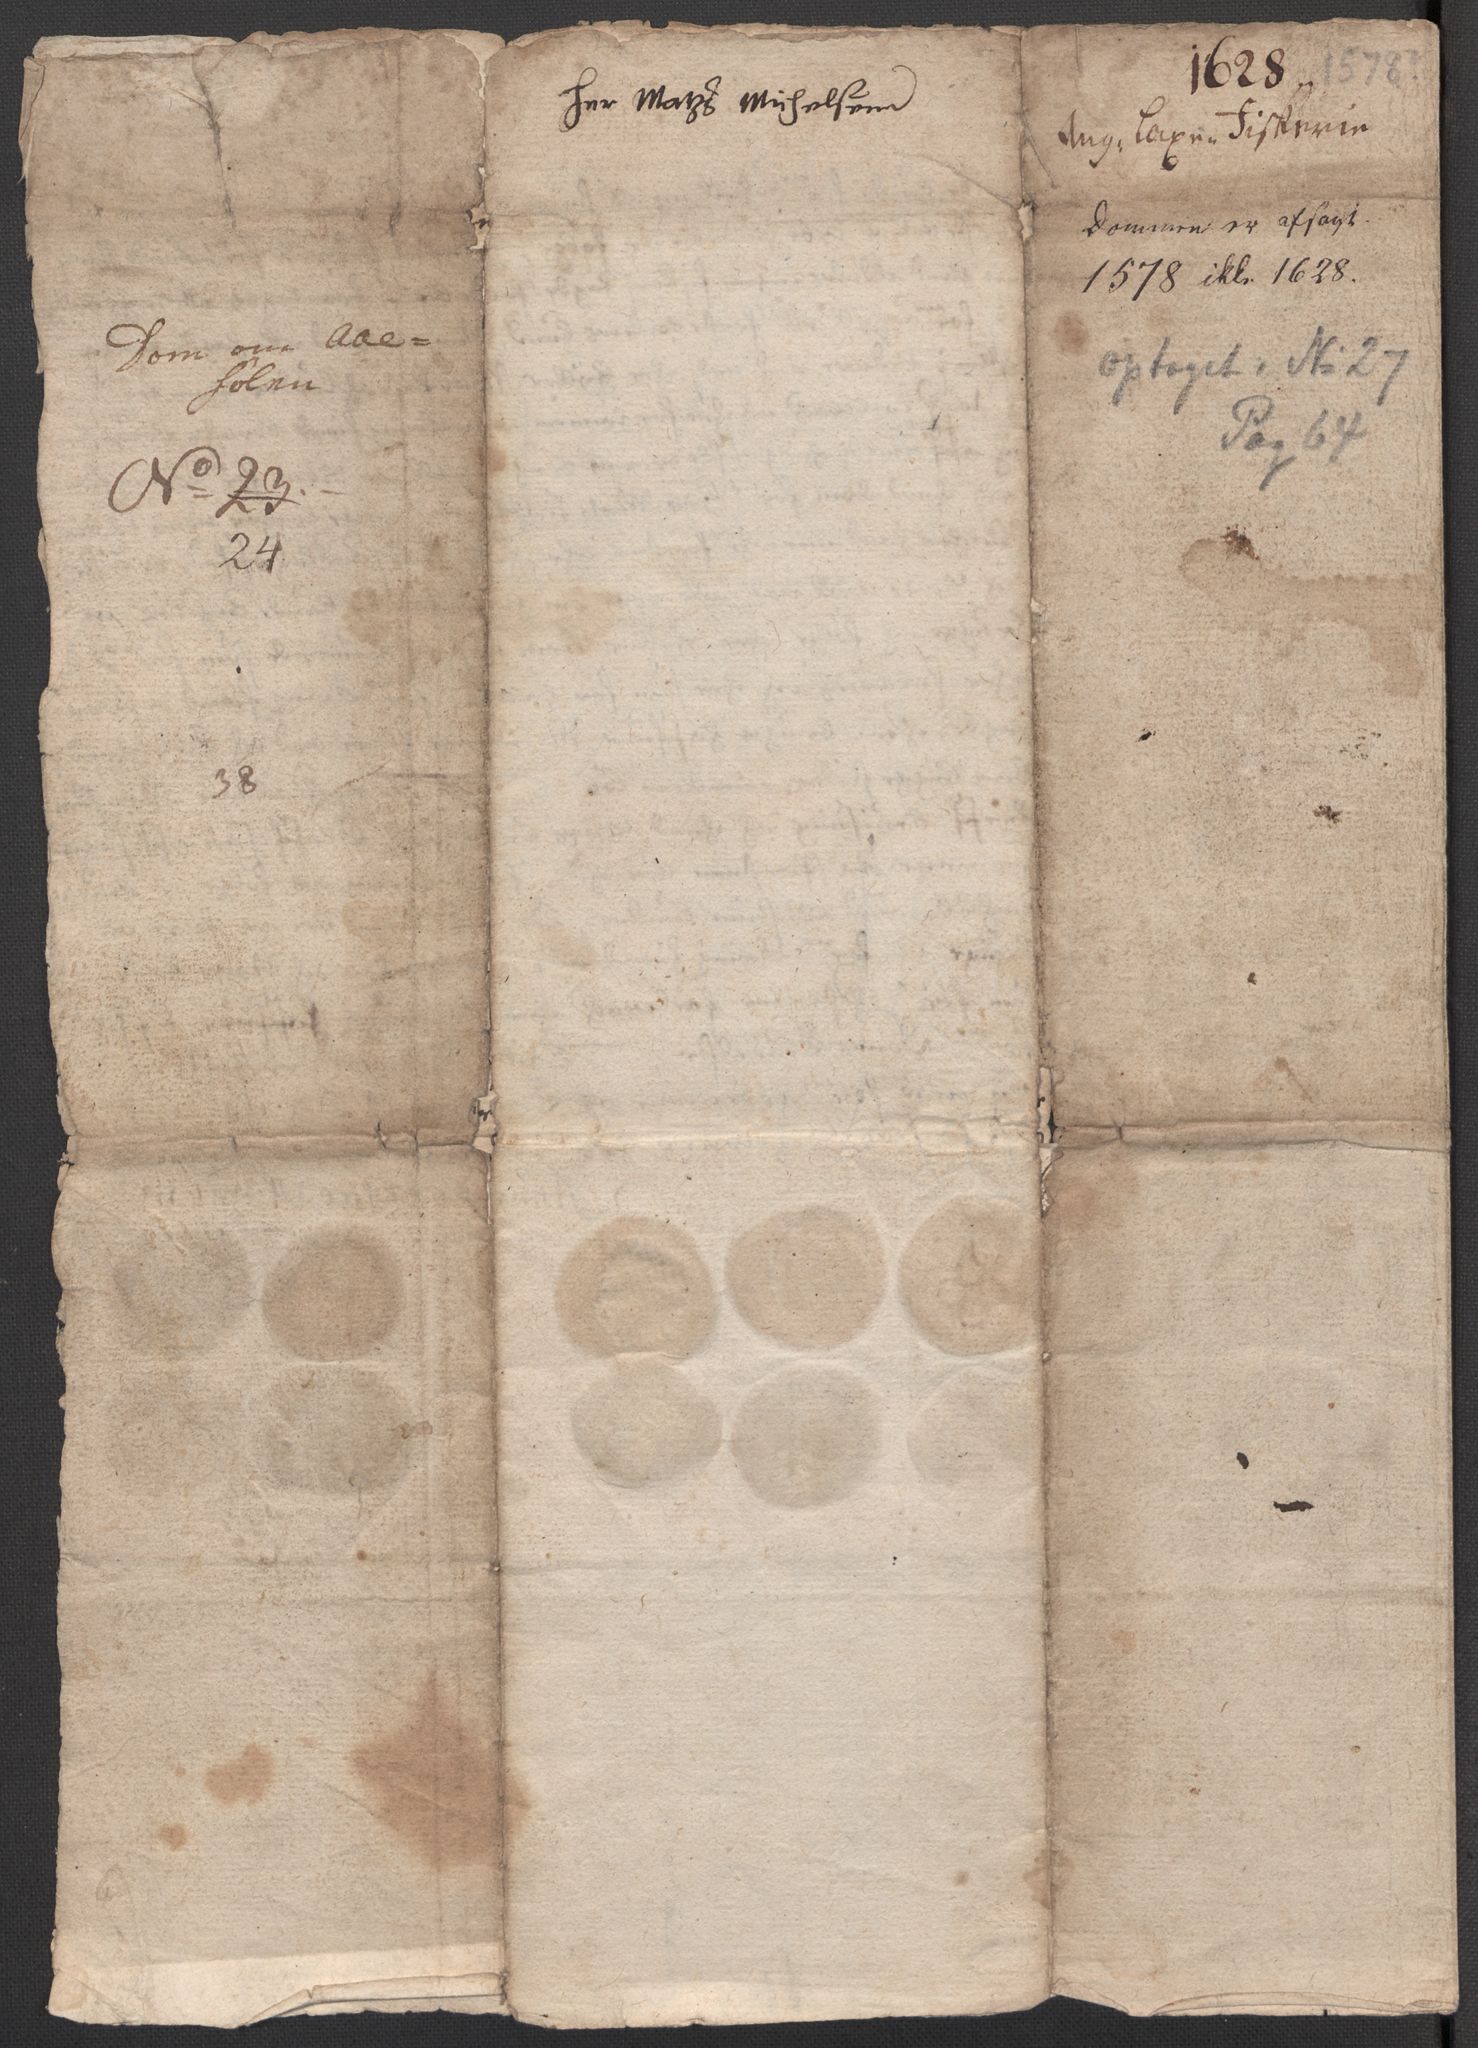 Dom om Aae=
hølen
No 23.
24
38
Her Matzs Michelsenn
1628. 1578?
Ang. Laxe Fiskerie
Dommen er afsagt
1578 ikke 1628.
optaget i No 27
Pag 64